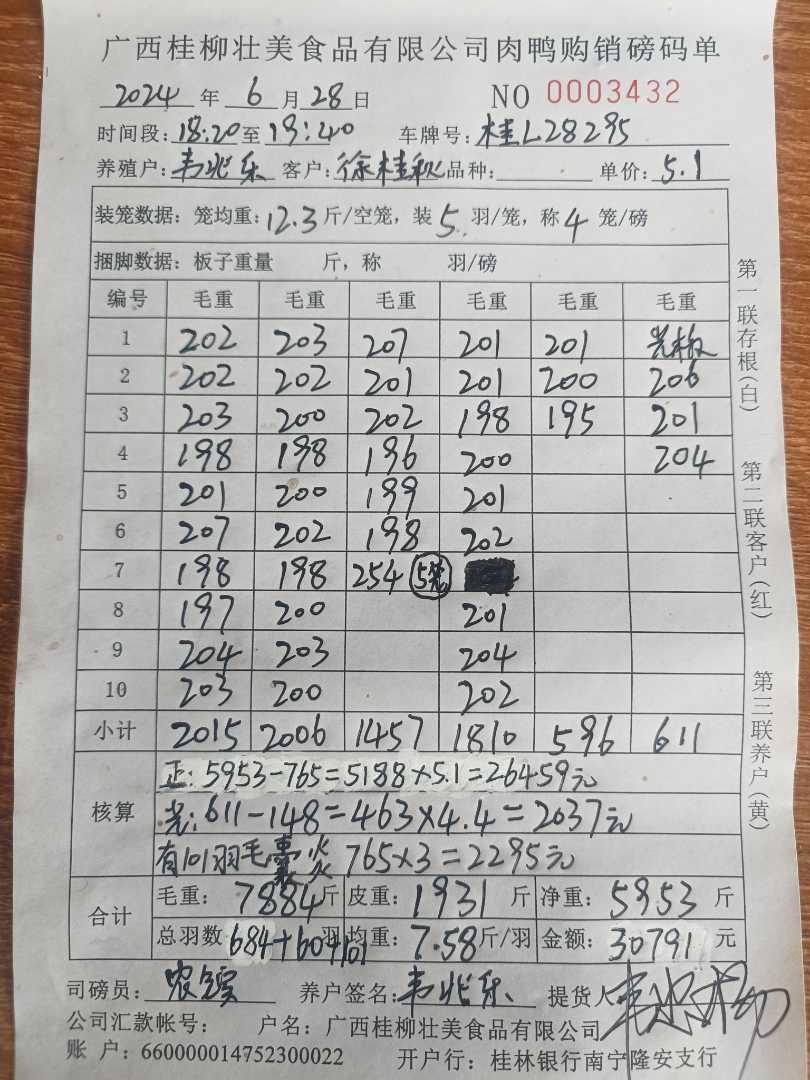 广西桂柳壮美食品有限公司肉鸭购销磅码单
2024 年 6 月 28 日 NO 0003432
时间段: 18:20 至 19:40 车牌号: 桂L28295
养殖户: 韦兆乐 客户: 徐桂秋 品种: 单价: 5.1
装笼数据: 笼均重: 12.3 斤/空笼, 装 5 羽/笼, 称 4 笼/磅
捆脚数据: 板子重量 斤, 称 羽/磅
编号 毛重 毛重 毛重 毛重 毛重 毛重
1 202 203 207 201 201 光板
2 202 202 201 201 200 206
3 203 200 202 198 195 201
4 198 198 196 200 204
5 201 200 199 201
6 207 202 198 202
7 198 198 254 5笼
8 197 200 201
9 204 203 204
10 203 200 202
小计 2015 2006 1457 1810 596 611
核算
正: 5953-765=5188×5.1=26459元
光: 611-148=463×4.4=2037元
有101羽毛囊炎 765×3=2295元
合计
毛重: 7884 斤 皮重: 1931 斤 净重: 5953 斤
总羽数 684+60+101 羽 均重: 7.58 斤/羽 金额: 30791 元
司磅员: 农 养户签名: 韦兆乐 提货人
公司汇款帐号: 户名: 广西桂柳壮美食品有限公司
账 户: 660000014752300022 开户行: 桂林银行南宁隆安支行
第一联存根(白)
第二联客户(红)
第三联养户(黄)